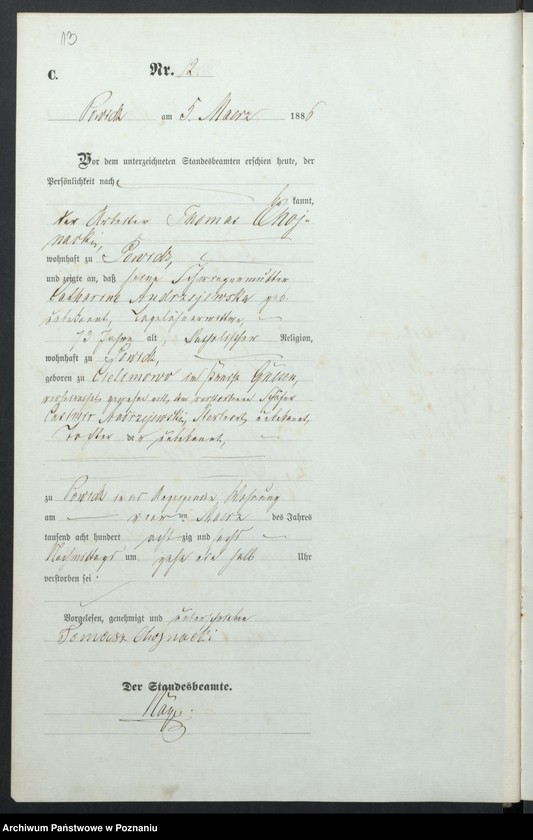 13
C.
Nr. 12
Powidz am 5. Maerz 1886
Vor dem unterzeichneten Standesbeamten erschien heute, der
Persönlichkeit nach
be kannt,
der Arbeiter Thomas Choj-
nacki,
wohnhaft zu Powidz,
und zeigte an, daß seine Schwiegermutter
Catharina Andrzejewska geb.
unbekannt, Tagelöhnerwittwe,
73 Jahre alt, katholischer Religion,
wohnhaft zu Powidz,
geboren zu im Kreise Gnesen,
verheirathet gewesen mit dem verstorbenen
Casimir Andrzejewski, unbekannt,
Tochter der unbekannt,
zu Powidz in Wohnung
am vier ten Maerz des Jahres
tausend acht hundert acht zig und sechs
Nachmittags um halb Uhr
verstorben sei.
Vorgelesen, genehmigt und unterschrieben
Tomasz Chojnacki
Der Standesbeamte.
Archiwum Państwowe w Poznaniu